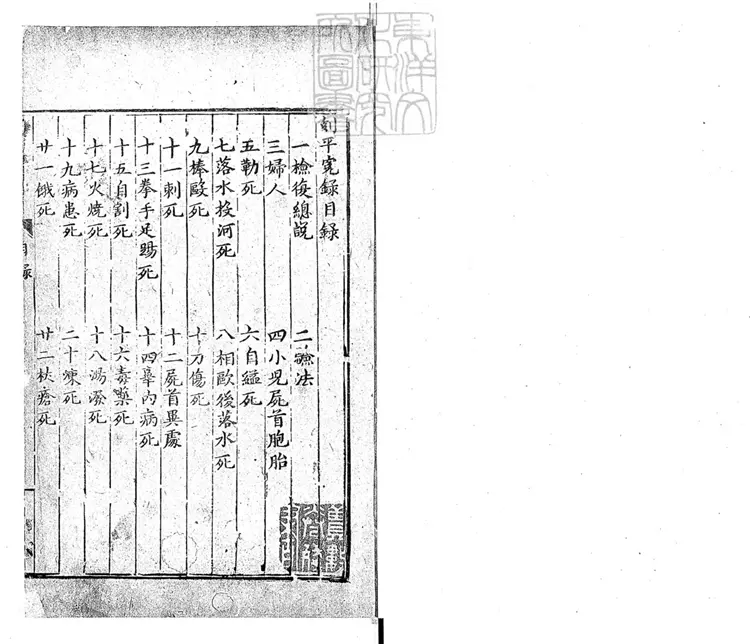 刻平冤録目録
一檢復總説 二驗法
三婦人 四小児屍首胞胎
五勒死 六自縊死
七落水投河死 八相毆後落水死
九棒毆死 十刀傷死
十一刺死 十二屍首異處
十三拳手足踢死 十四辜内病死
十五自割死 十六毒藥死
十七火燒死 十八湯潑死
十九病患死 二十凍死
廿一餓死 廿二杖瘡死
目録